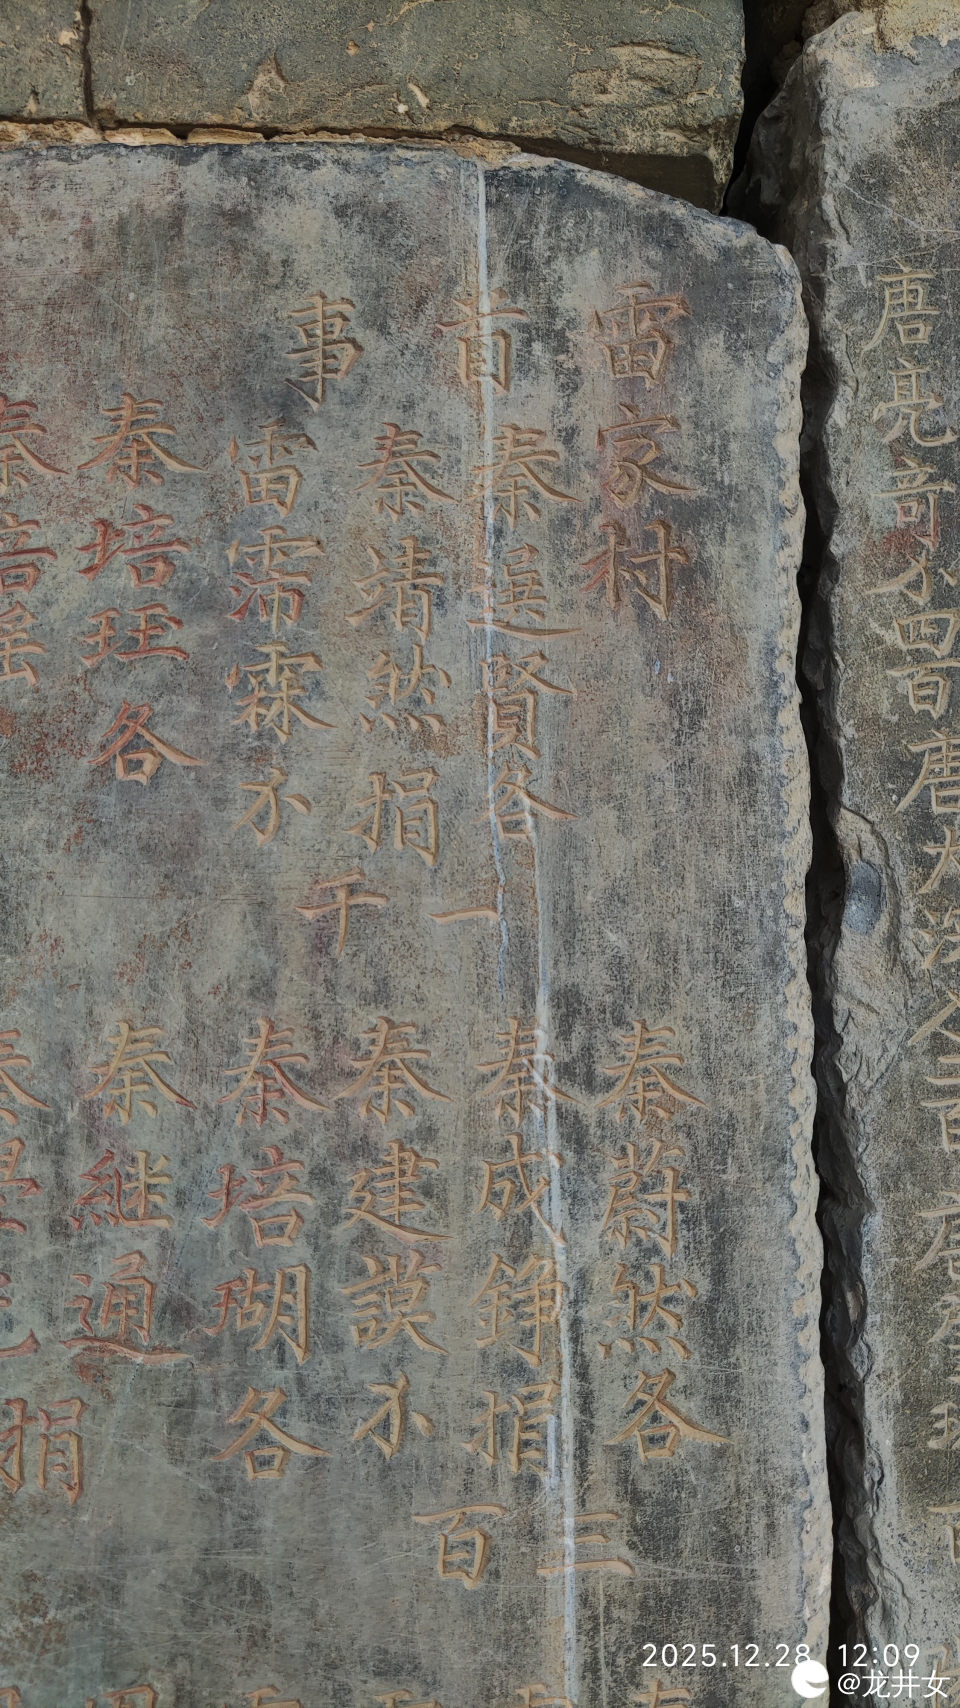 唐亮奇小四百
雷家村
首事
秦選賢各
秦靖然捐
雷霈霖小
一千
秦培珏各
秦培瑤
秦蔚然各
秦成錚捐
秦建謨小
三百
秦培瑚各
秦継通
捐
2025.12.28 12:09
@龙井女